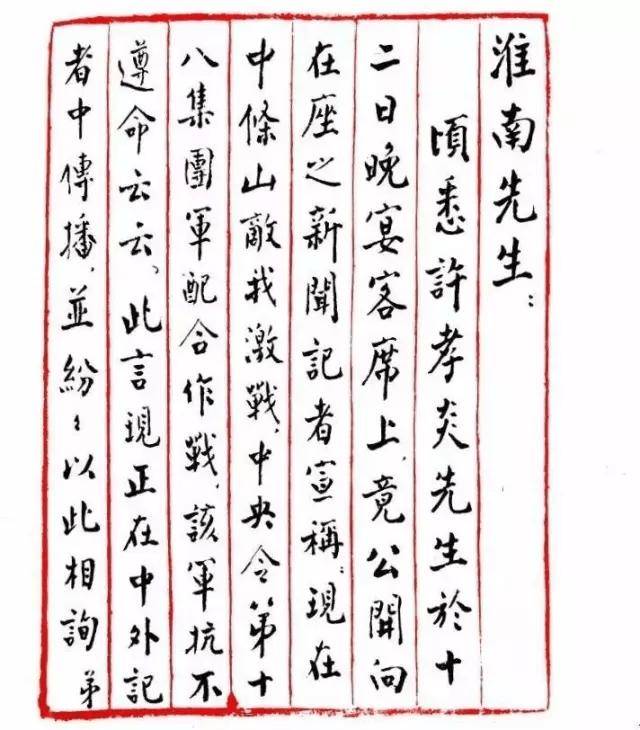 淮南先生：
頃悉許孝炎先生於十
二日晚宴客席上，竟公開向
在座之新聞記者宣稱：現在
中條山敵我激戰，中央令第十
八集團軍配合作戰，該軍抗不
遵命云云，此言現正在中外記
者中傳播，並紛〻以此相詢弟